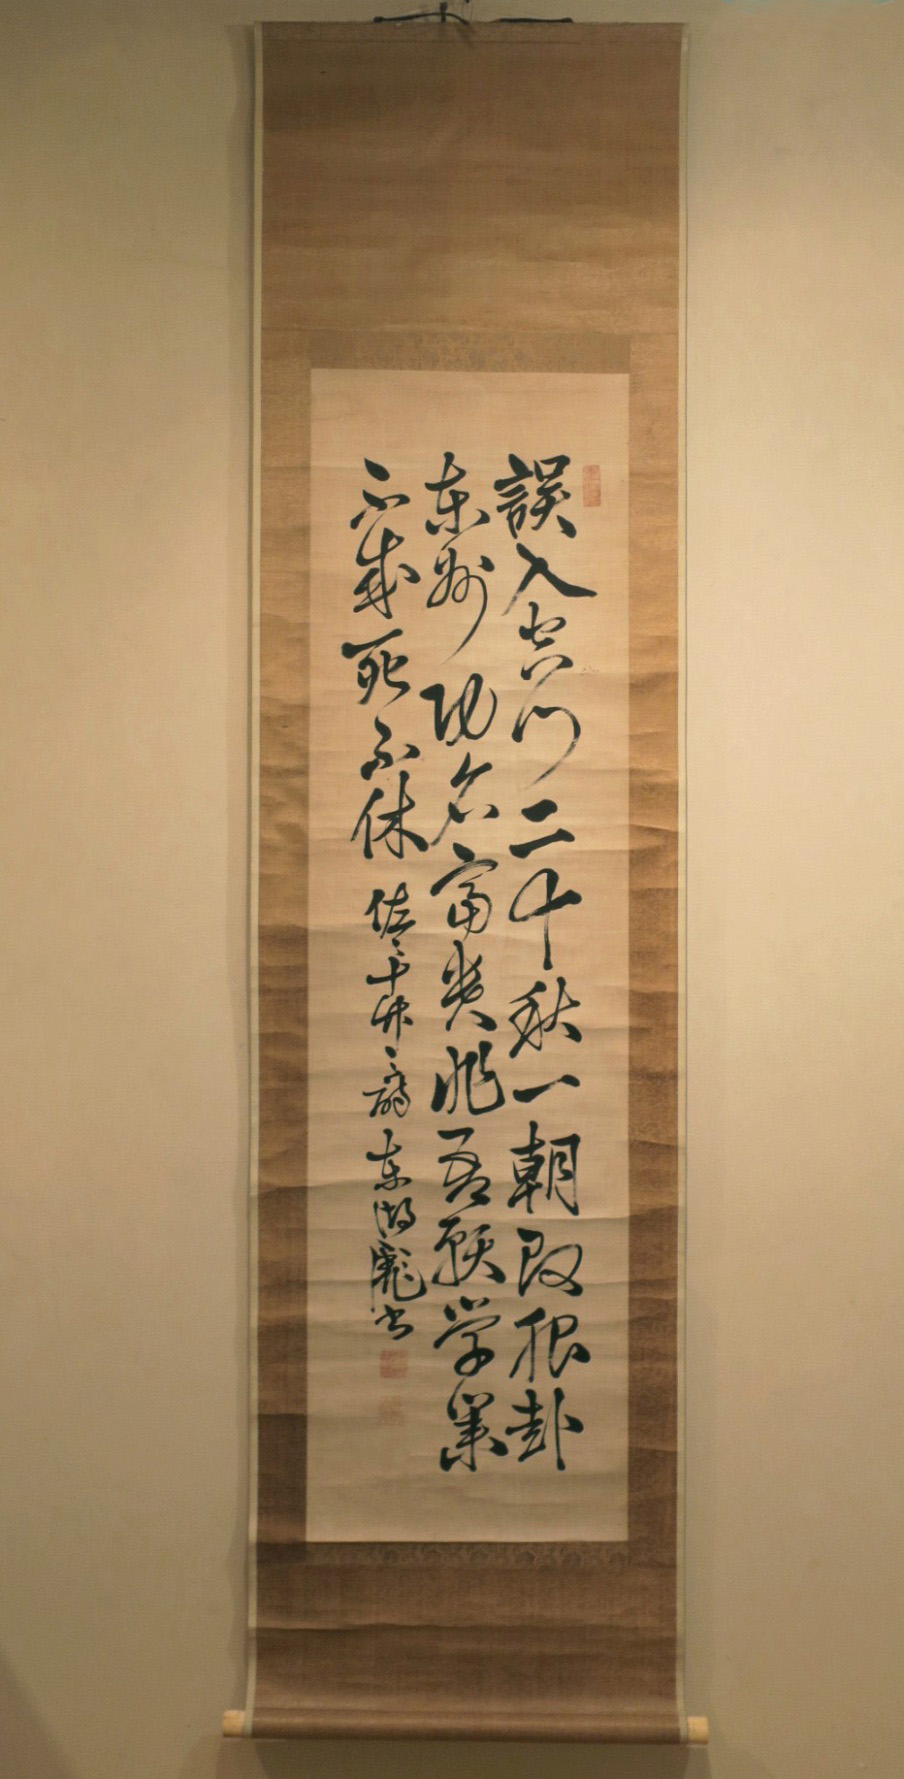 誤入空門二十秋一朝改服赴
東州功名富貴非吾願学業
不成死不休
佐々十竹 東湖彪書